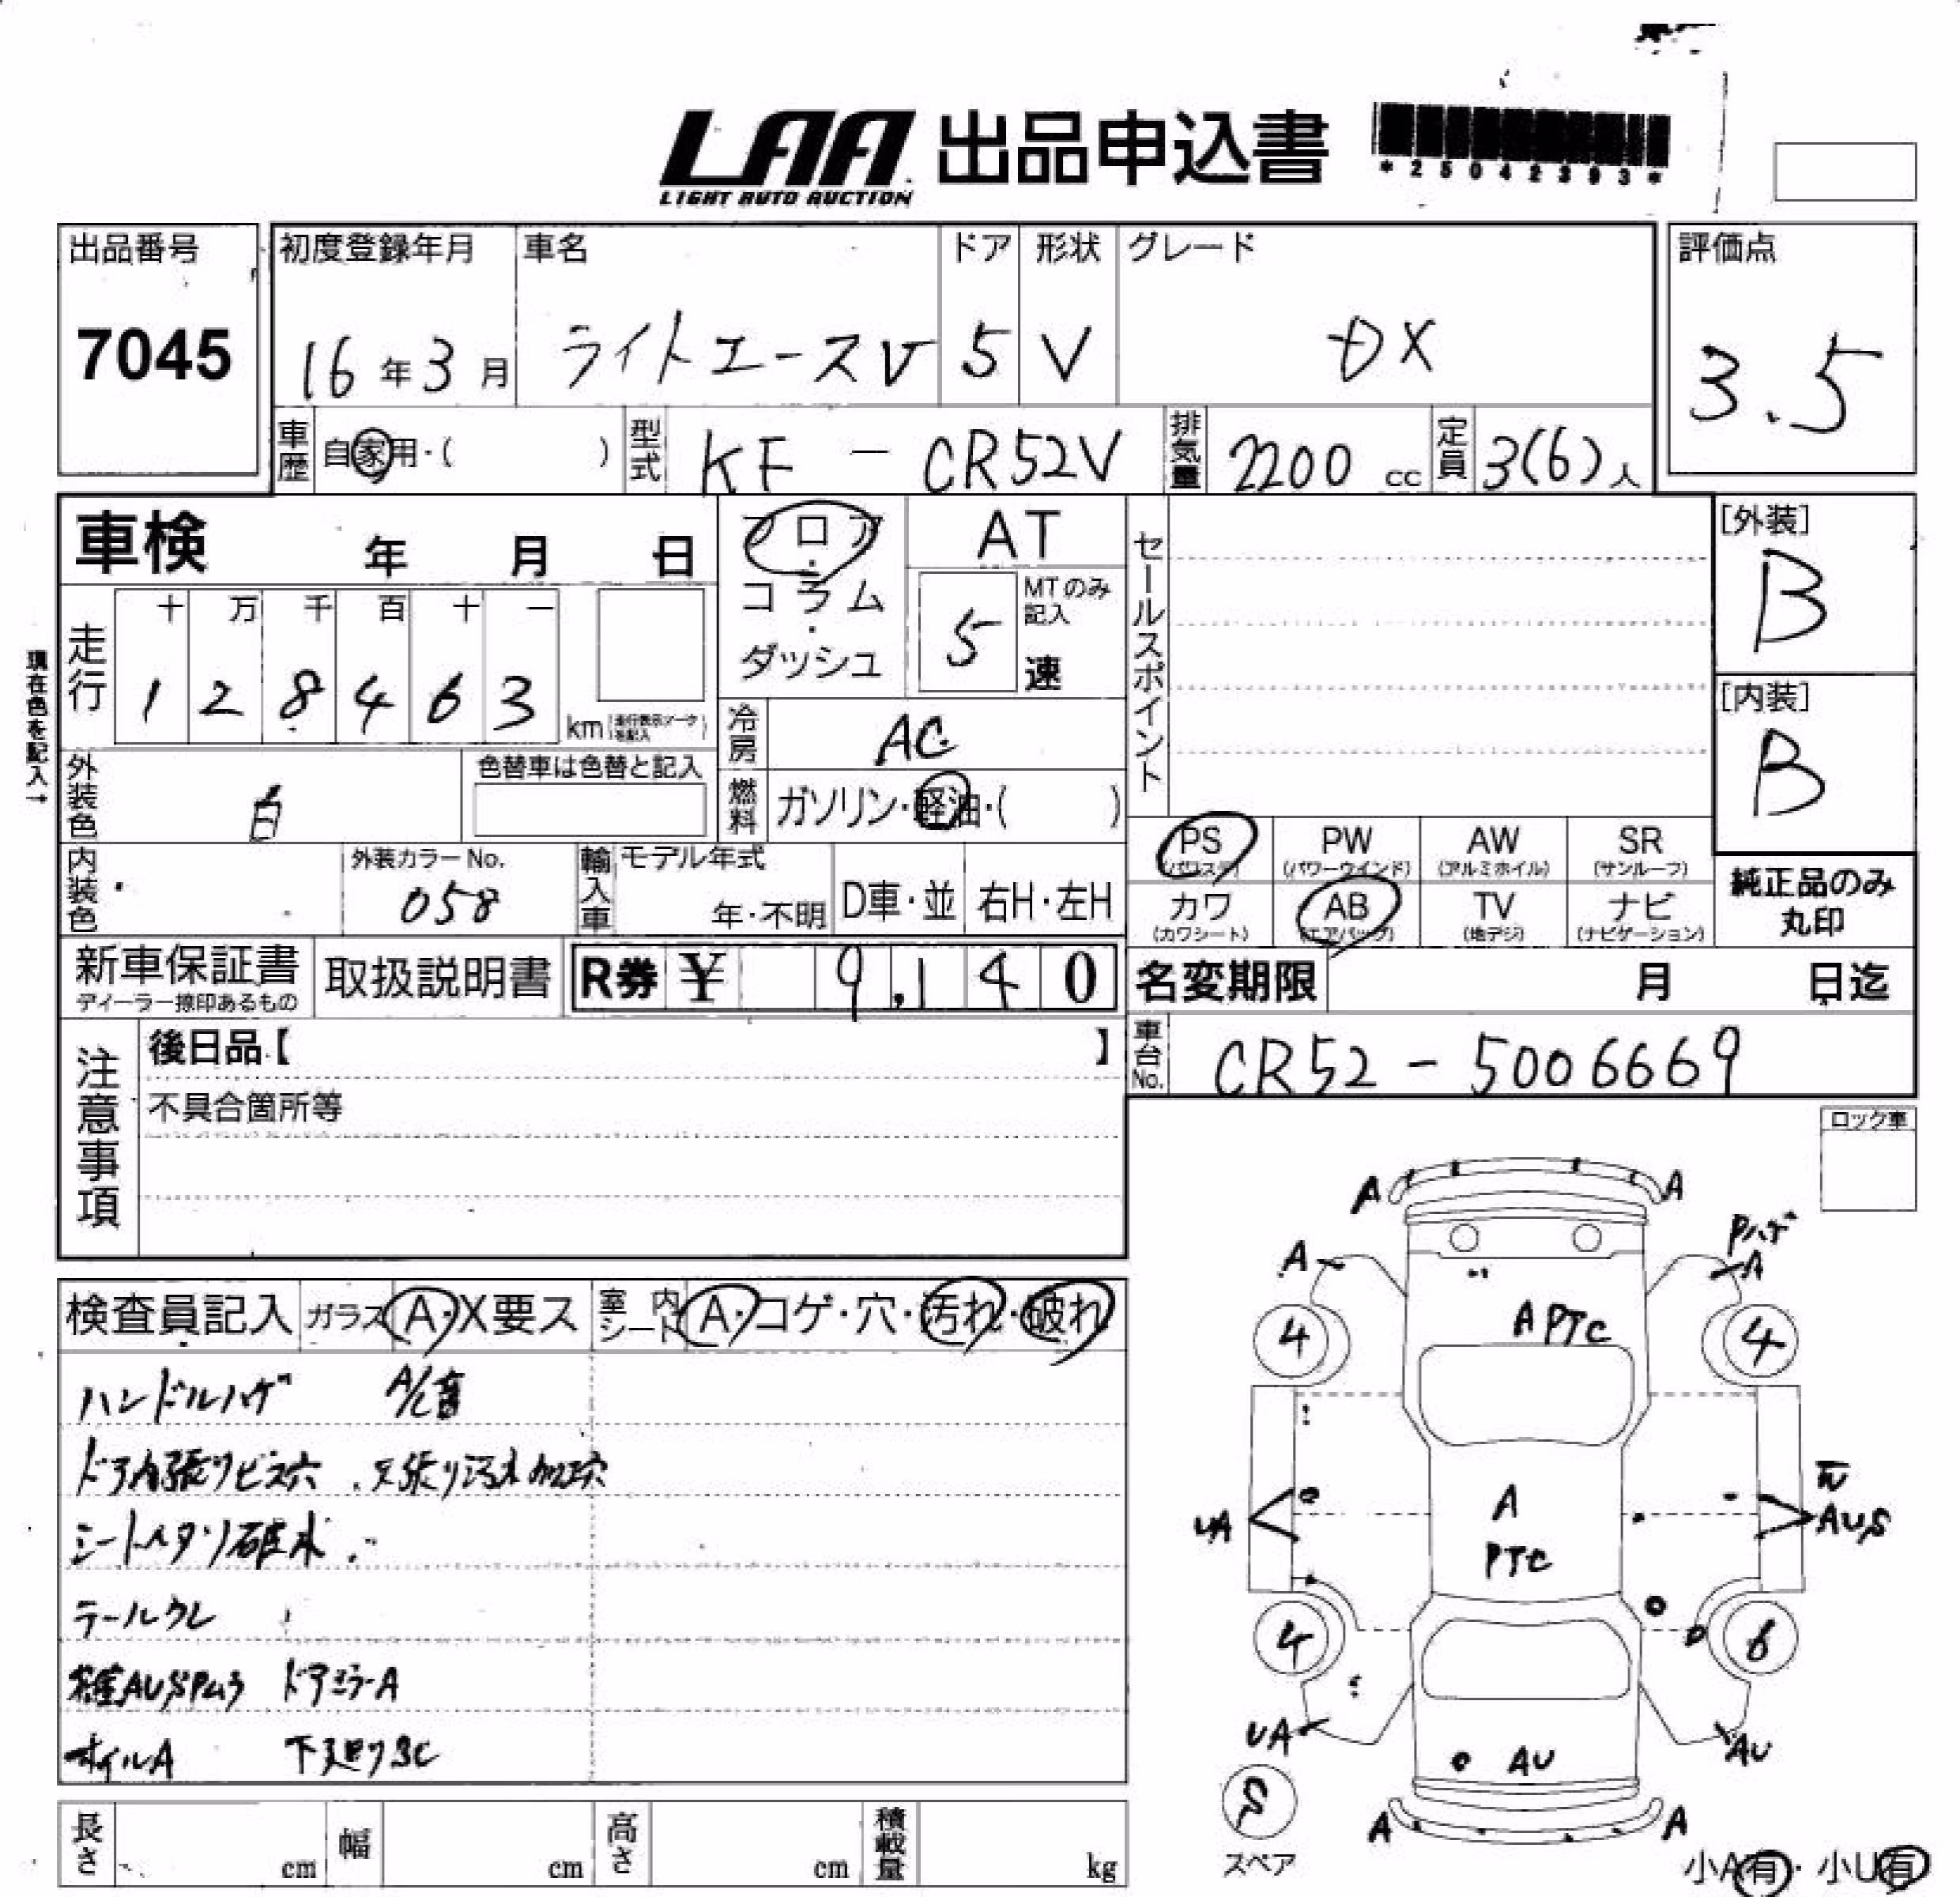 LAA 出品申込書
LIGHT AUTO AUCTION
*25042393*
出品番号 初度登録年月 車名 ドア 形状 グレード 評価点
7045 16年3月 ライトエースV 5 V DX 3.5
車歴 自家用・( ) 型式 KF - CR52V 排気量 2200 cc 定員 3(6)人
車検 年 月 日 フロア・コラム・ダッシュ AT セールスポイント [外装]
B
5 MTのみ記入 速
走行 十 万 千 百 十 一
1 2 8 4 6 3 km
[内装]
B
現在色を記入→
冷房 AC
外装色 白 色替車は色替と記入 燃料 ガソリン・軽油・( )
PS PW AW SR
(パワステ) (パワーウインド) (アルミホイル) (サンルーフ)
純正品のみ丸印
内装色 外装カラーNo. 058 輸入車 モデル年式 年・不明 D車・並 右H・左H
カワ AB TV ナビ
(カワシート) (エアバッグ) (地デジ) (ナビゲーション)
新車保証書 取扱説明書 R券 ¥ 9,140 名変期限 月 日迄
ディーラー捺印あるもの
注意事項 後日品【 】 車台No. CR52-5006669
不具合箇所等
ロック車
検査員記入 ガラス A・X要ス 室内シート A・コゲ・穴・汚れ・破れ
ハンドルハゲ A/C音
ドア内張りビス穴
シートヘタリ破れ
テールワレ
ドアミラーA
オイルA 下廻りSC
A A
A Pハゲ A
4 A PTC 4
UA A AUS
PTC
4 6
UA AU AU
S
スペア
A A
小A有・小U有
長さ cm 幅 cm 高さ cm 積載量 kg